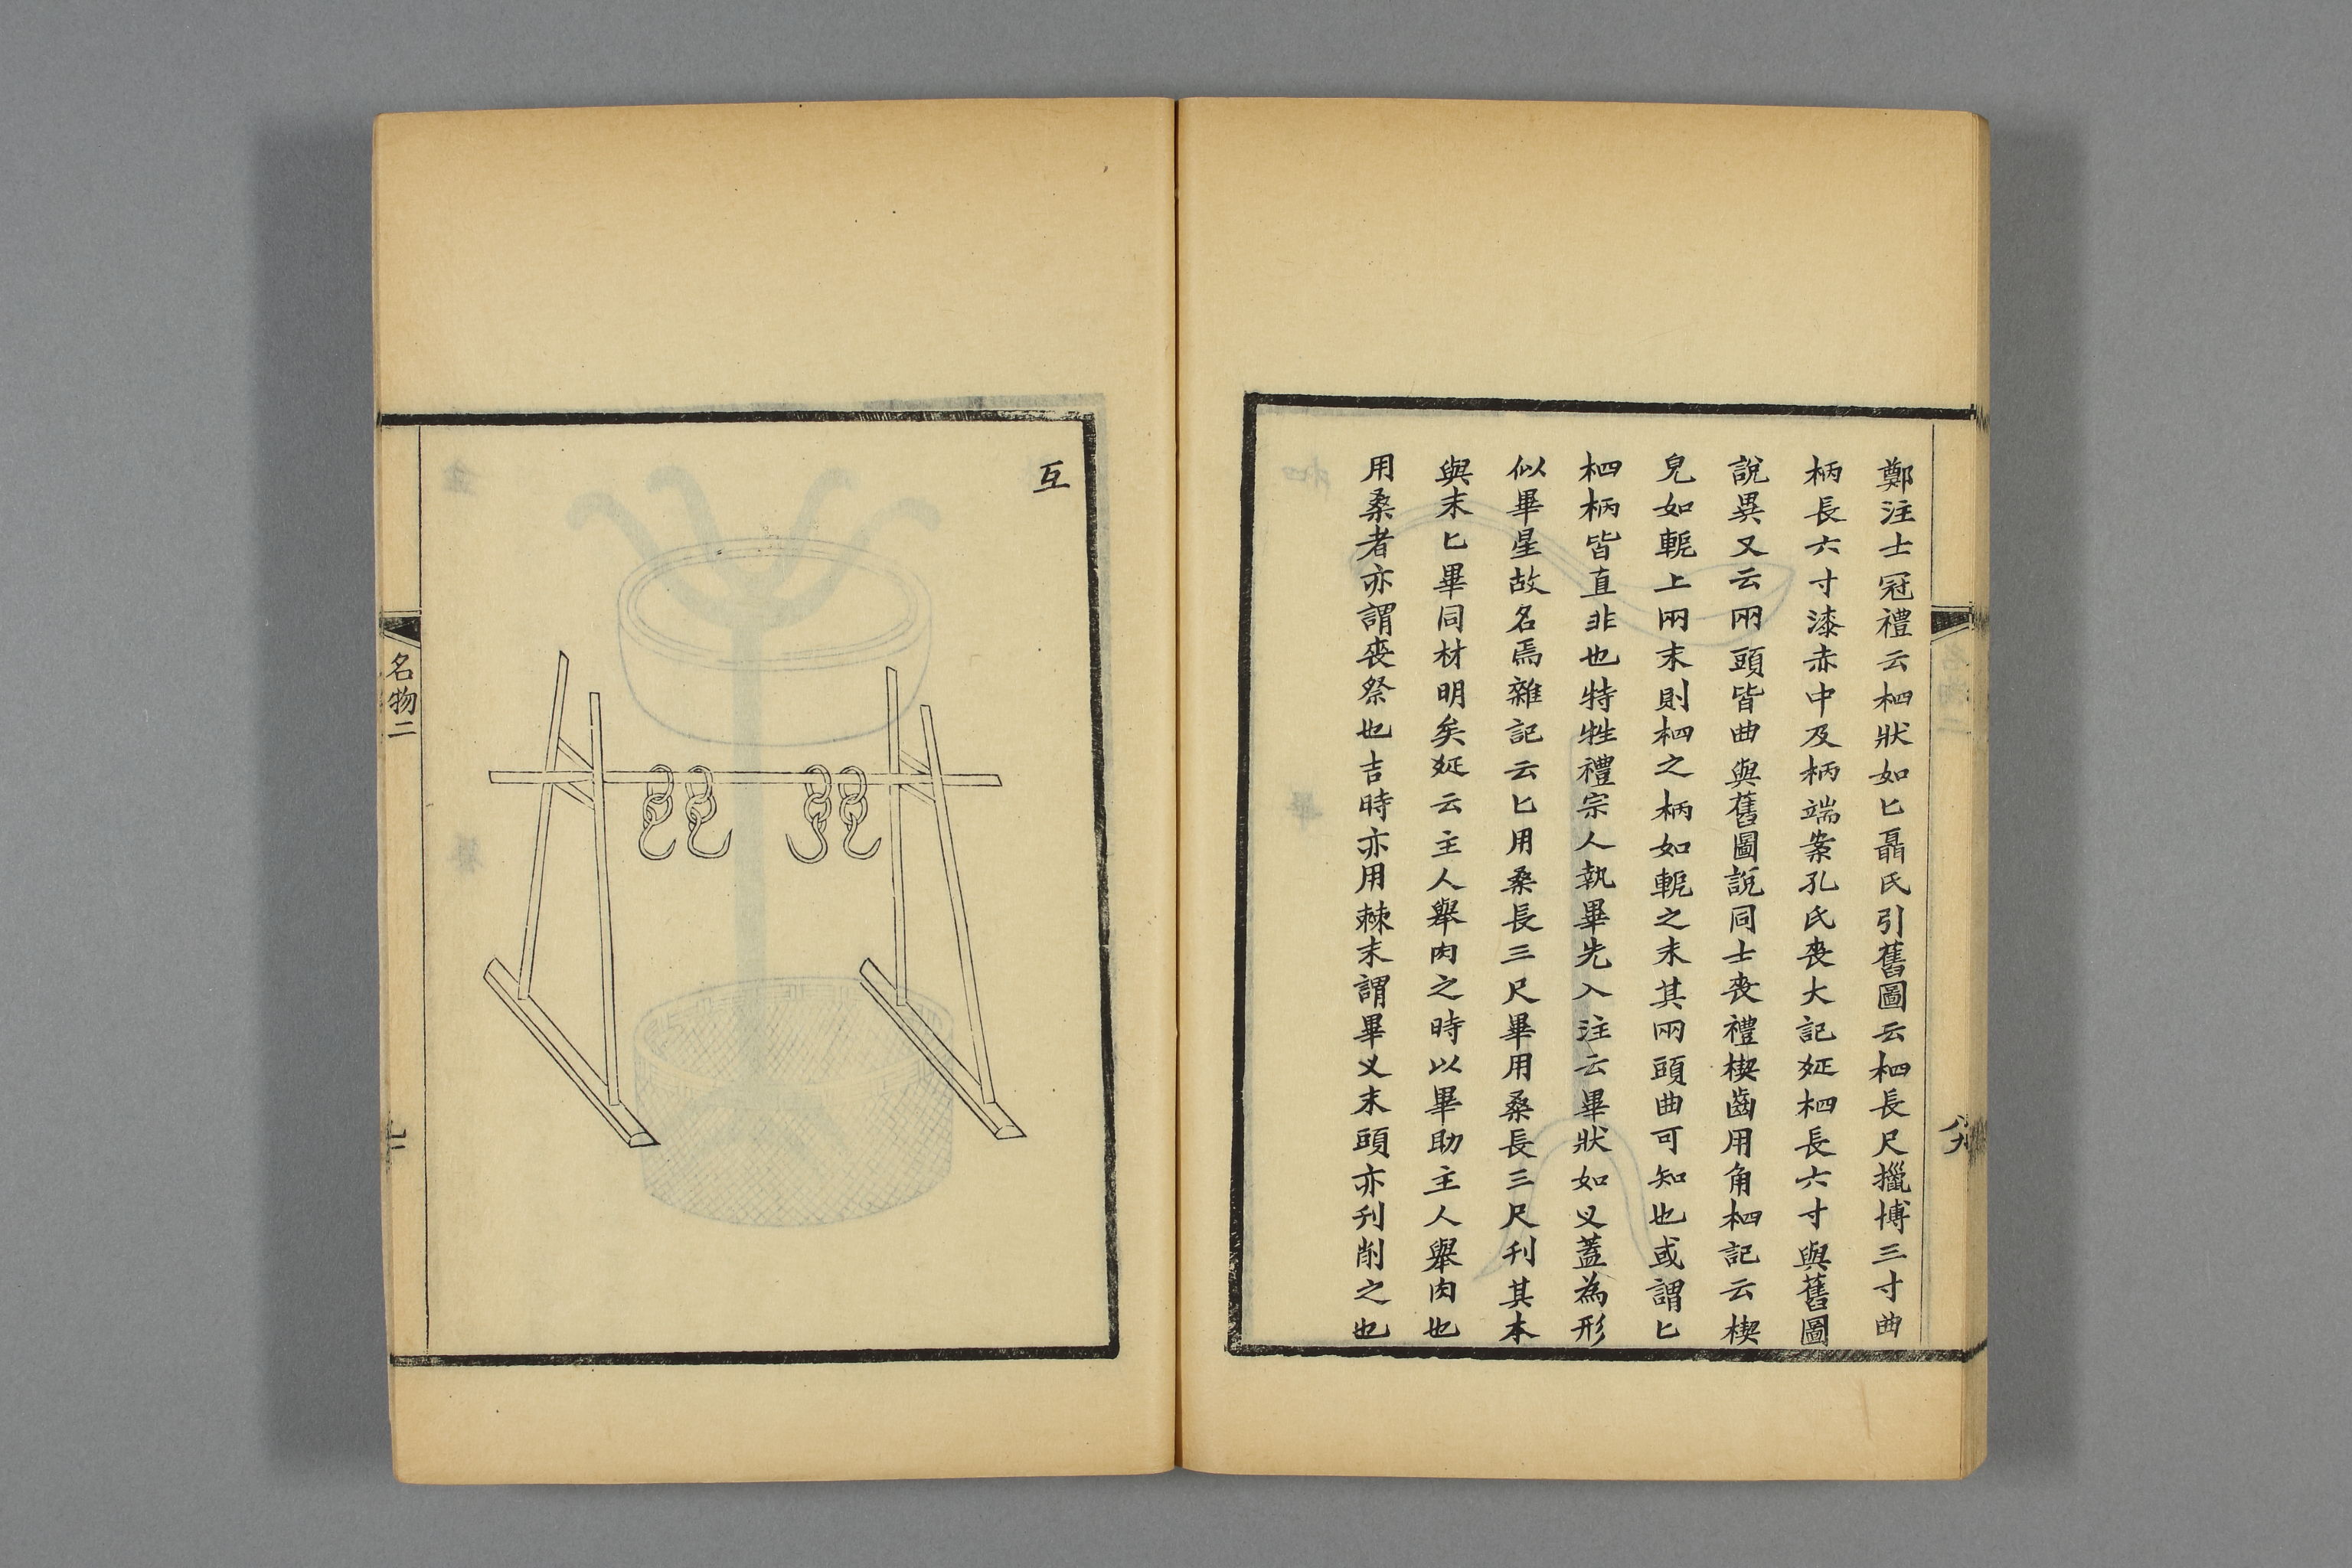 鄭注士冠禮云柶狀如匕聶氏引舊圖云柶長尺擸博三寸曲
柄長六寸漆赤中及柄端案孔氏喪大記疏柶長六寸與舊圖
說異又云兩頭皆曲與舊圖說同士喪禮楔齒用角柶記云楔
皃如軶上兩末則柶之柄如軶之末其兩頭曲可知也或謂匕
柶柄皆直非也特牲禮宗人執畢先入注云畢狀如叉蓋為形
似畢星故名焉雜記云匕用桑長三尺畢用桑長三尺刊其本
與末匕畢同材明矣疏云主人舉肉之時以畢助主人舉肉也
用桑者亦謂喪祭也吉時亦用棘末謂畢叉末頭亦刊削之也
互
名物二